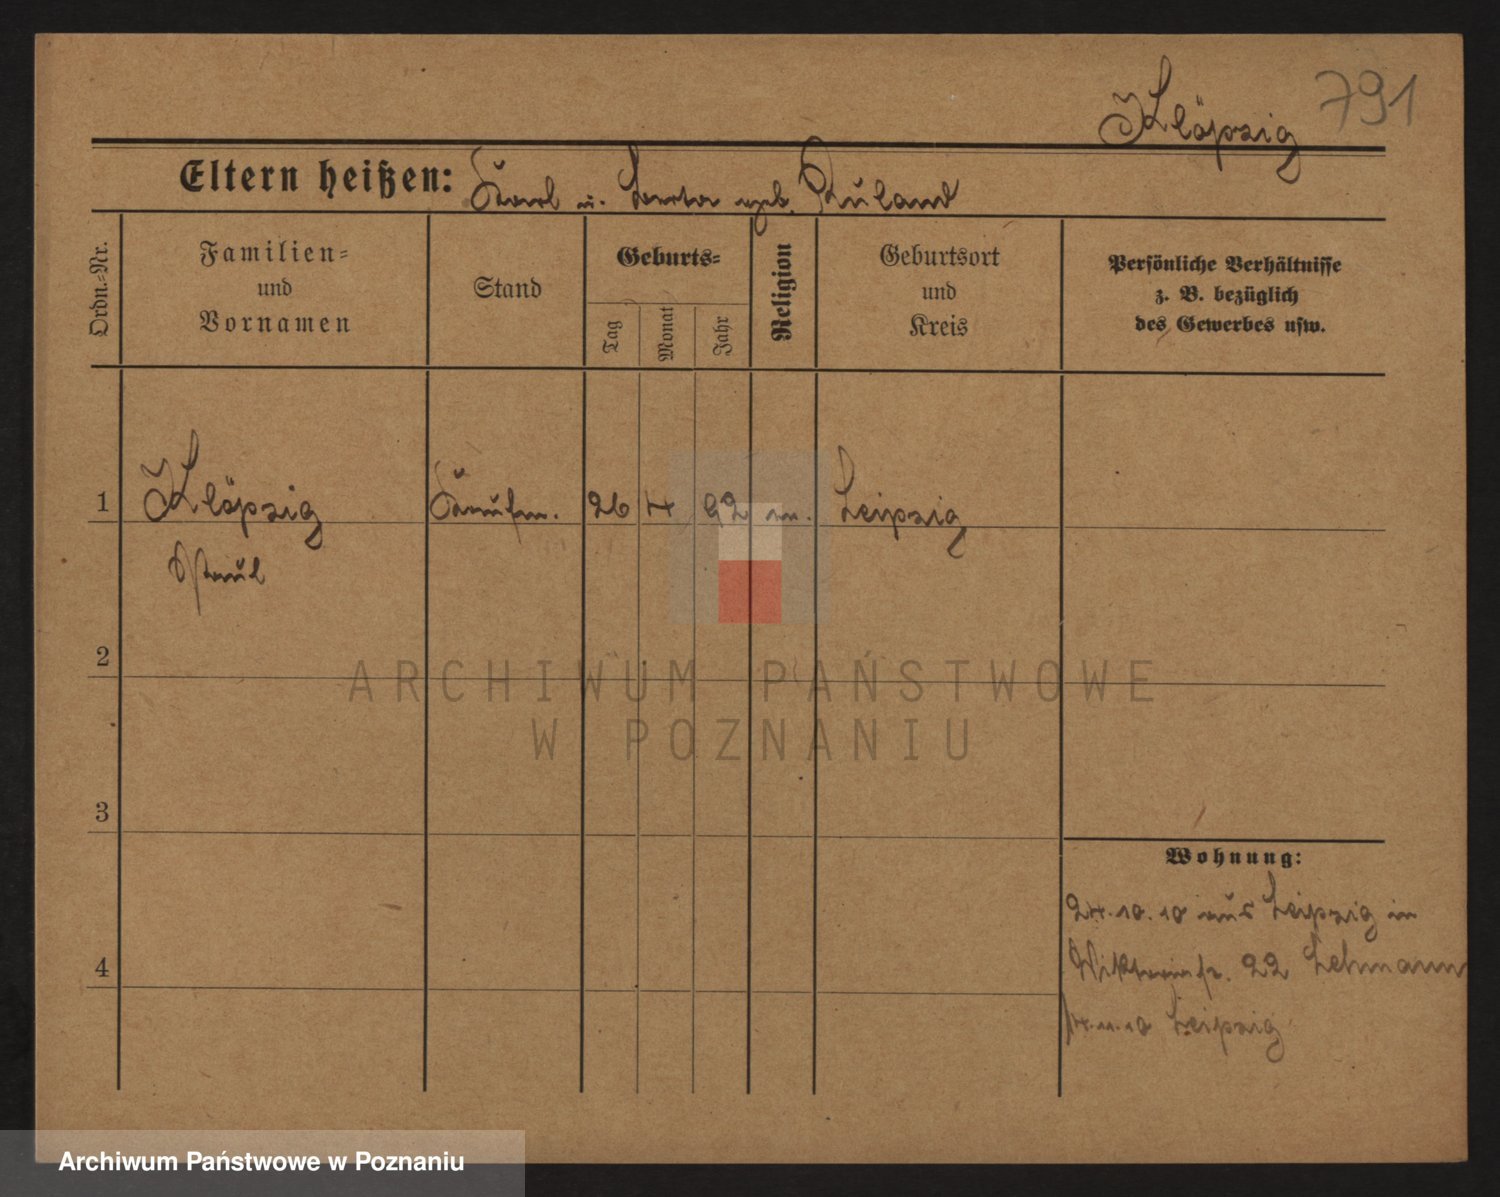 791
Klöpzig
Eltern heißen: Karl u. Berta geb. Ruland
Ordn.-Nr.
Familien-
und
Vornamen
Stand
Geburts-
Tag
Monat
Jahr
Religion
Geburtsort
und
Kreis
Persönliche Verhältnisse
z. B. bezüglich
des Gewerbes usw.
1 Klöpzig Kaufm. 26 4 92 Leipzig
Paul
2
3
4
Wohnung:
24.10.10 aus Leipzig in
Viktoriastr. 22 Lehmann
4.11.10 Leipzig
ARCHIWUM PAŃSTWOWE
W POZNANIU
Archiwum Państwowe w Poznaniu